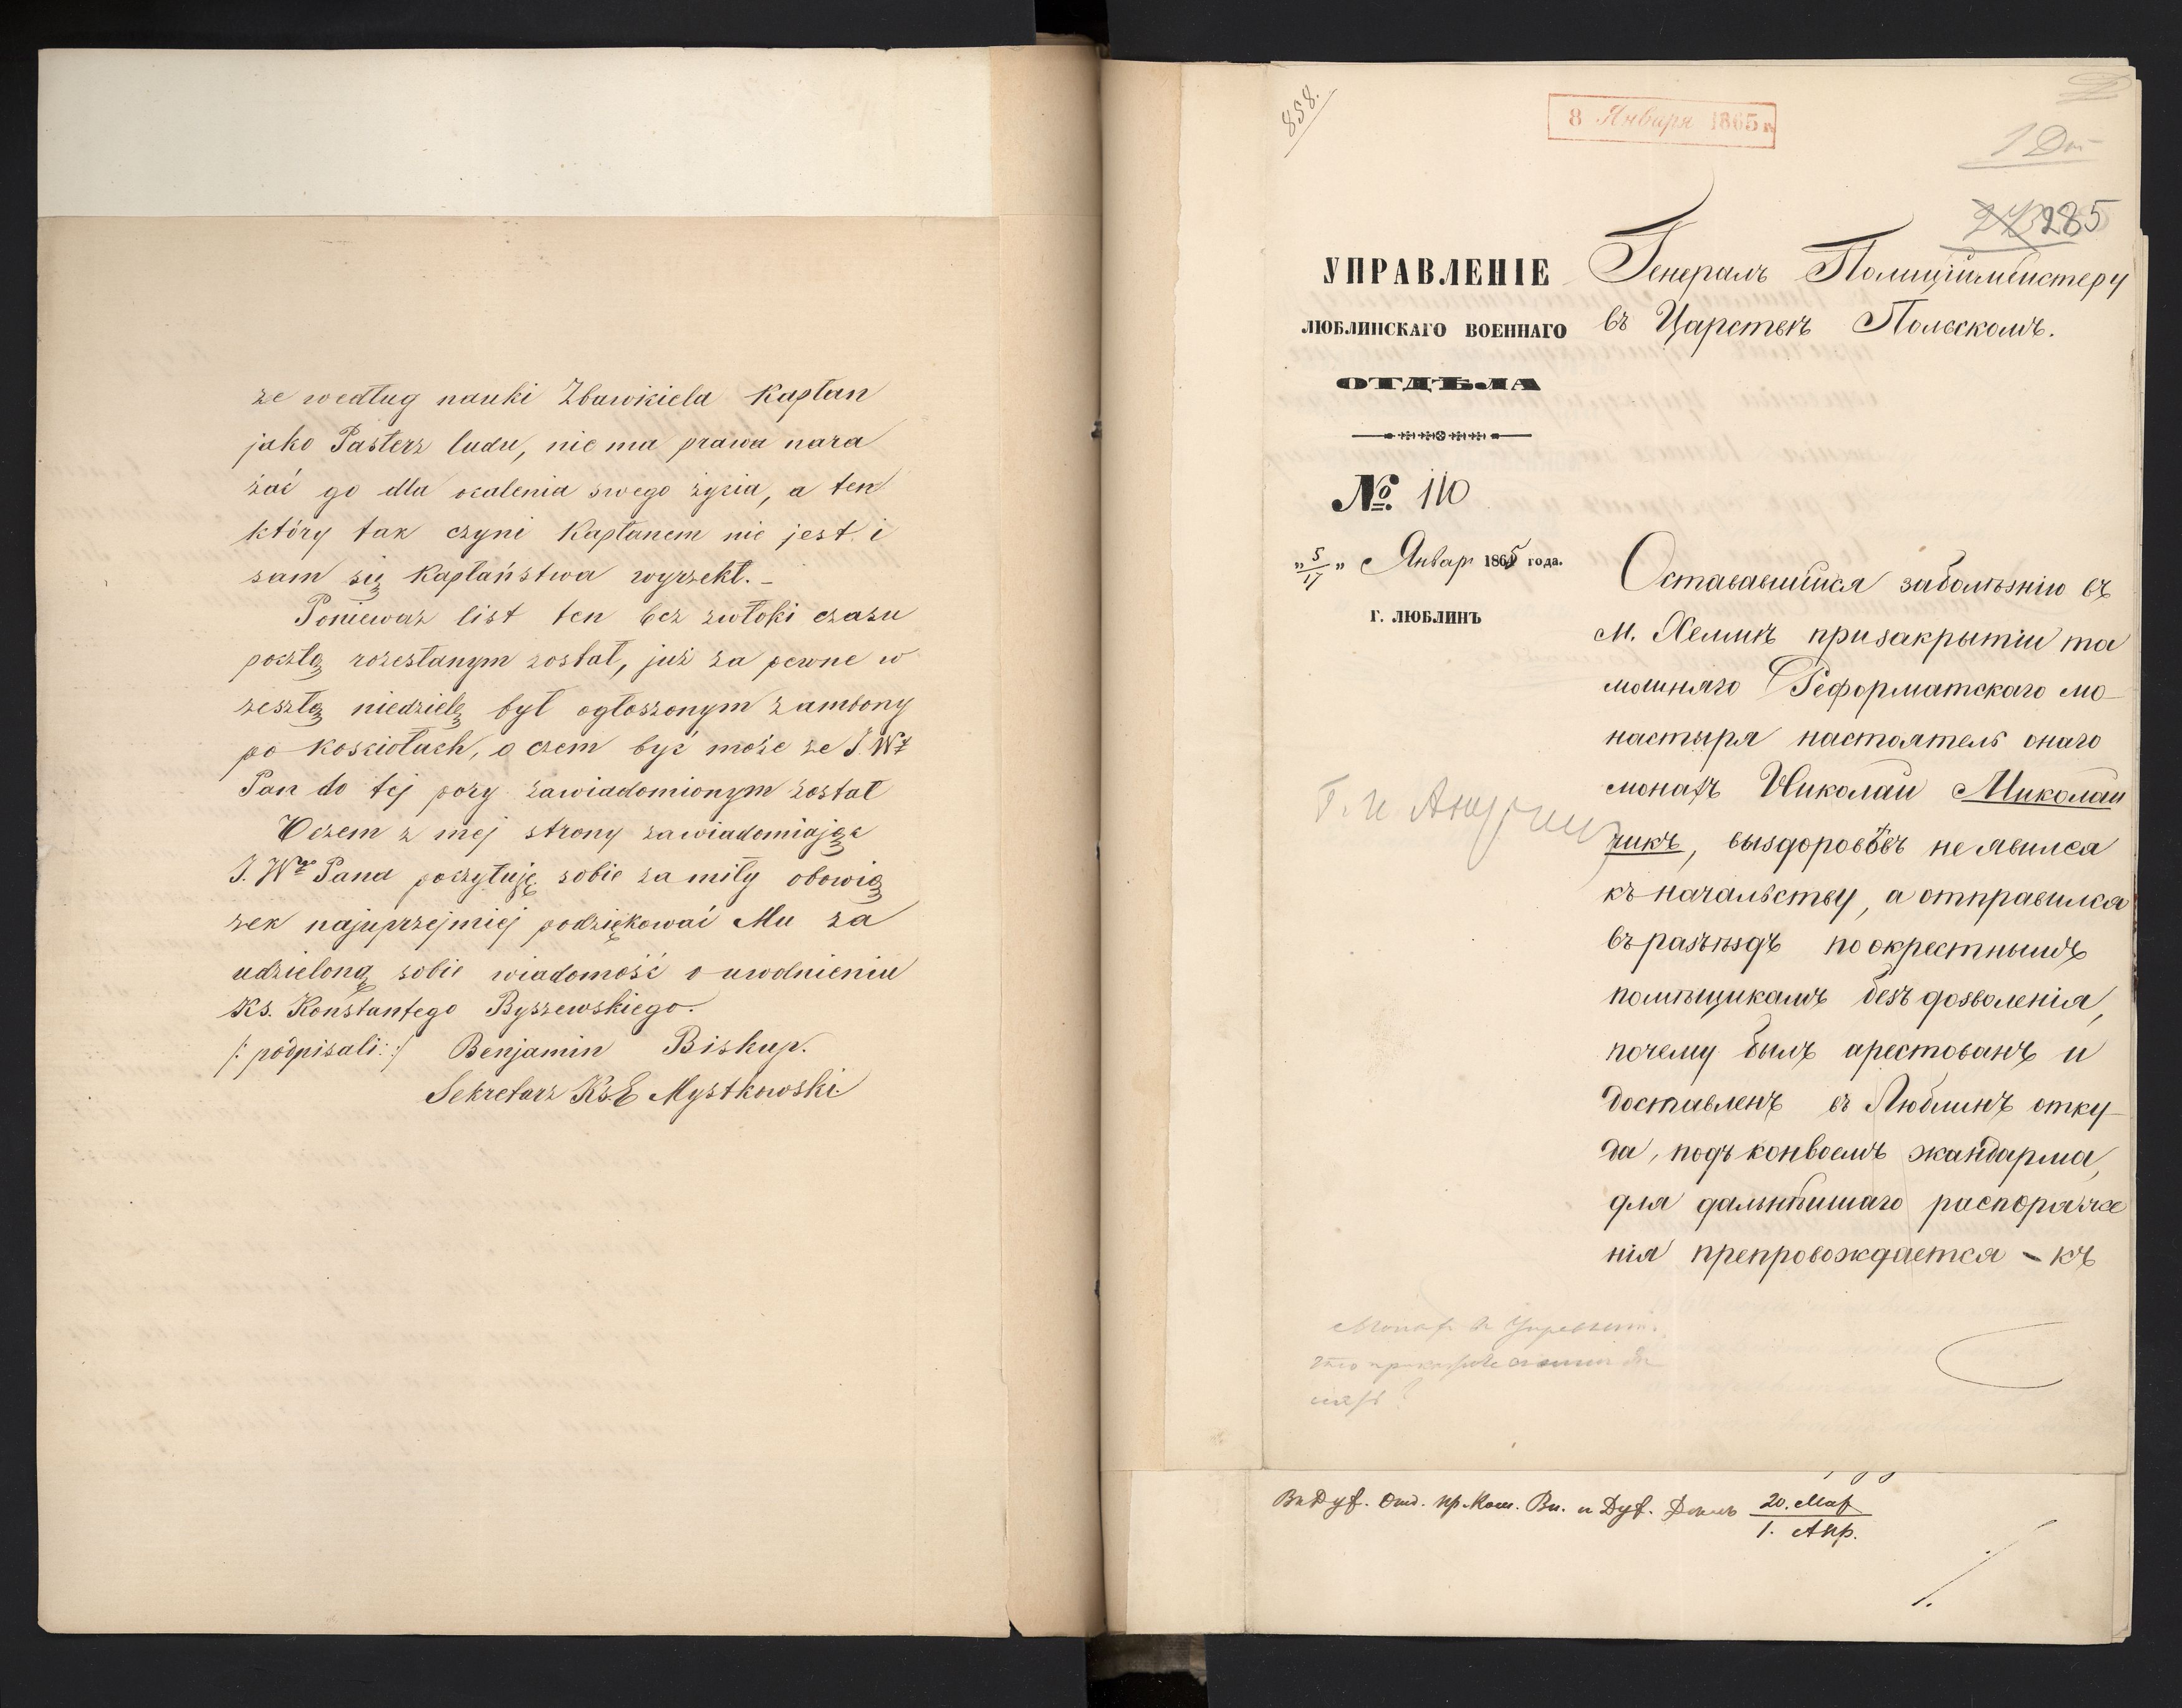 że według nauki Zbawiciela Kapłan
jako Pasterz ludu, nie ma prawa nara
żać go dla ocalenia swego życia, a ten
który tak czyni Kapłanem nie jest i
sam się Kapłaństwa wyrzekł. –
Ponieważ list ten bez zwłoki czasu
pocztą rozesłanym został, już za pewne w
zeszłą niedzielę był ogłoszonym z ambony
po kosciołach, o czem być może że J. Wż
Pan do tej pory zawiadomionym został
O czem z mej strony zawiadomiając
J. Wgo Pana poczytuję sobie za miły obowią
zek najuprzejmiej podziękować Mu za
udzieloną sobie wiadomość o uwolnieniu
Ks. Konstantego Byszewskiego.
/: podpisali: :/ Benjamin Biskup.
Sekretarz Ks E Mystkowski
858.
8 Января 1865 г.
285
УПРАВЛЕНІЕ
ЛЮБЛИНСКАГО ВОЕННАГО
ОТДѢЛА
№ 110
„5/17„ Январ 1865 года.
Г. ЛЮБЛИНЪ
Генералъ Полиціймейстеру
въ Царствѣ Польскомъ.
Остававшійся заболѣзнію въ
м. Хелмѣ призакрытіи та
мошняго Реформатскаго мо-
настыря настоятель онаго
монахъ Николай Миколай
чикъ, выздоровѣвъ не явился
къ начальству, а отправился
въ разъѣздъ по окрестнымъ
помѣщикамъ безъ дозволенія,
почему былъ арестованъ и
доставленъ въ Люблинъ отку-
да, подъ конвоемъ жандарма,
для дальнѣйшаго распоряже
нія препровождается – къ
Вн Дух. Отд. пр. Ком. Вн. и Дух. Дѣлъ 20. Мар / 1. Апр.